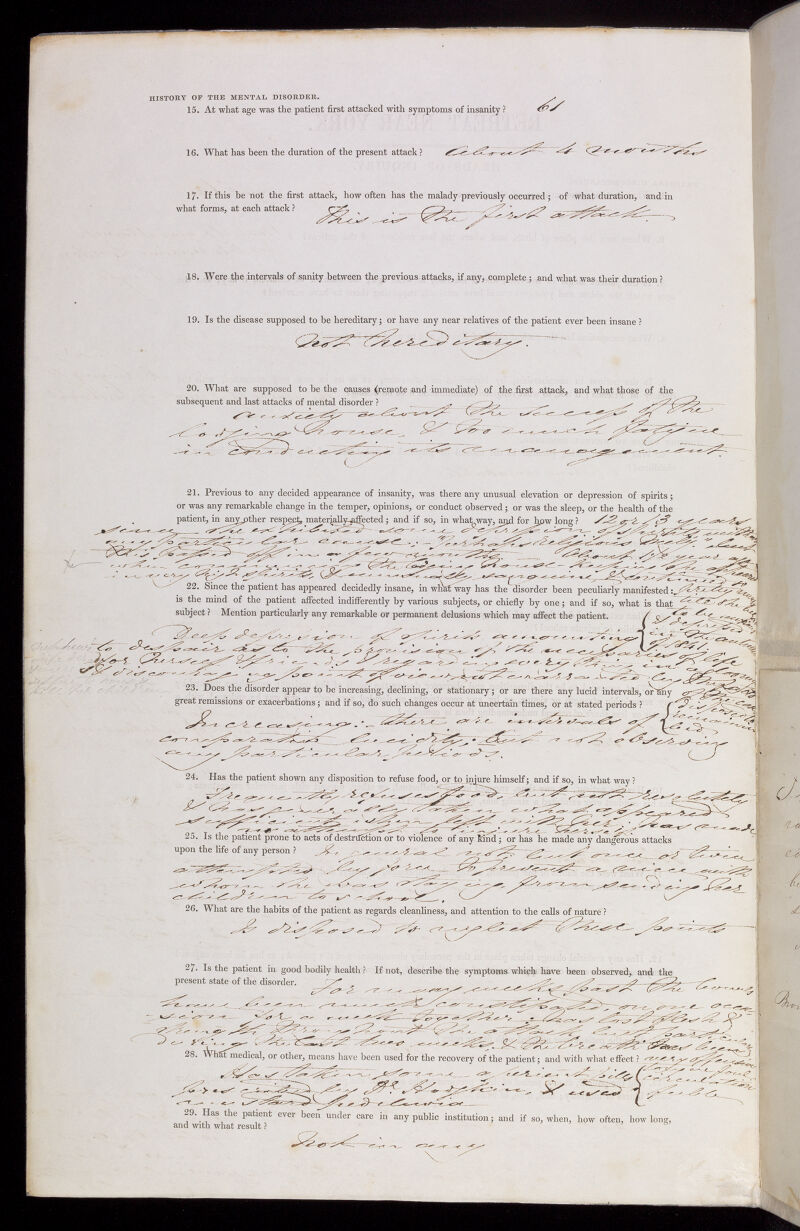 HISTORY OF THE MENTAL DISORDER.
15. At what age was the patient first attacked with symptoms of insanity? 61
16. What has been the duration of the present attack? About 4 months
17. If this be not the first attack, how often has the malady previously occurred; of what duration, and in
what forms, at each attack? This is the first attack.
18. Were the intervals of sanity between the previous attacks, if any, complete; and what was their duration?
19. Is the disease supposed to be hereditary; or have any near relatives of the patient ever been insane?
Not hereditary.
20. What are supposed to be the causes (remote and immediate) of the first attack, and what those of the
subsequent and last attacks of mental disorder?
Anxiety about the success of the
lodging house, & too much fatigue
in conducting its management.
21. Previous to any decided appearance of insanity, was there any unusual elevation or depression of spirits;
or was any remarkable change in the temper, opinions, or conduct observed; or was the sleep, or the health of the
patient, in any other respect, materially affected; and if so, in what way, and for how long? 12 or 13 years
since she exhibited some depression of spirits without
any particular cause: "Perhaps religious
This passed off in a few months. About 1½ year ago
when commencing the lodging house keeping she appeared
in very high spirits, & unusually sanguine, & continued so
22. Since the patient has appeared decidedly insane, in what way has the disorder been peculiarly manifested:
is the mind of the patient affected indifferently by various subjects, or chiefly by one; and if so, what is that
subject? Mention particularly any remarkable or permanent delusions which may affect the patient.
Deep depression of spirits amounting
to despair as to the provision of the necessaries of life
for herself & friends & regarding every thing in
& discouraging point of view not warranted by
23. Does the disorder appear to be increasing, declining, or stationary; or are there any lucid intervals, or any
great remissions or exacerbations; and if so, do such changes occur at uncertain times, or at stated periods?
Increasing: there are intervals of
comparative lucidity; but not observing
any particular periods.
24. Has the patient shown any disposition to refuse food, or to injure himself; and if so, in what way?
Frequently refuses food, but not resolutely
& has generally taken what appeared
sufficient when left with her; has made
no attempt to injure herself
25. Is the patient prone to acts of destruction or to violence of any kind; or has he made any dangerous attacks
upon the life of any person? In general not, but once or twice
attempted by force to prevent a niece with
whom she was staying from sending her
children to school.
26. What are the habits of the patient as regards cleanliness, and attention to the calls of nature?
Is disposed to neglect these points
27. Is the patient in good bodily health? If not, describe the symptoms which have been observed, and the
present state of the disorder. For many weeks past the bowels
have been much constipated, on one occa-
sion for a week together. Has lost flesh &
strength throughout the attack but particularly
during the last two weeks, & the breath has been
very offensive
28. What medical, or other, means have been used for the recovery of the patient; and with what effect?
Has taken some aperient pills
prescribed by Dr. Hodgkin, & used
mustard pediluvia
circulation
feeble
29. Has the patient ever been under care in any public institution; and if so, when, how often, how long,
and with what result?
Not in any